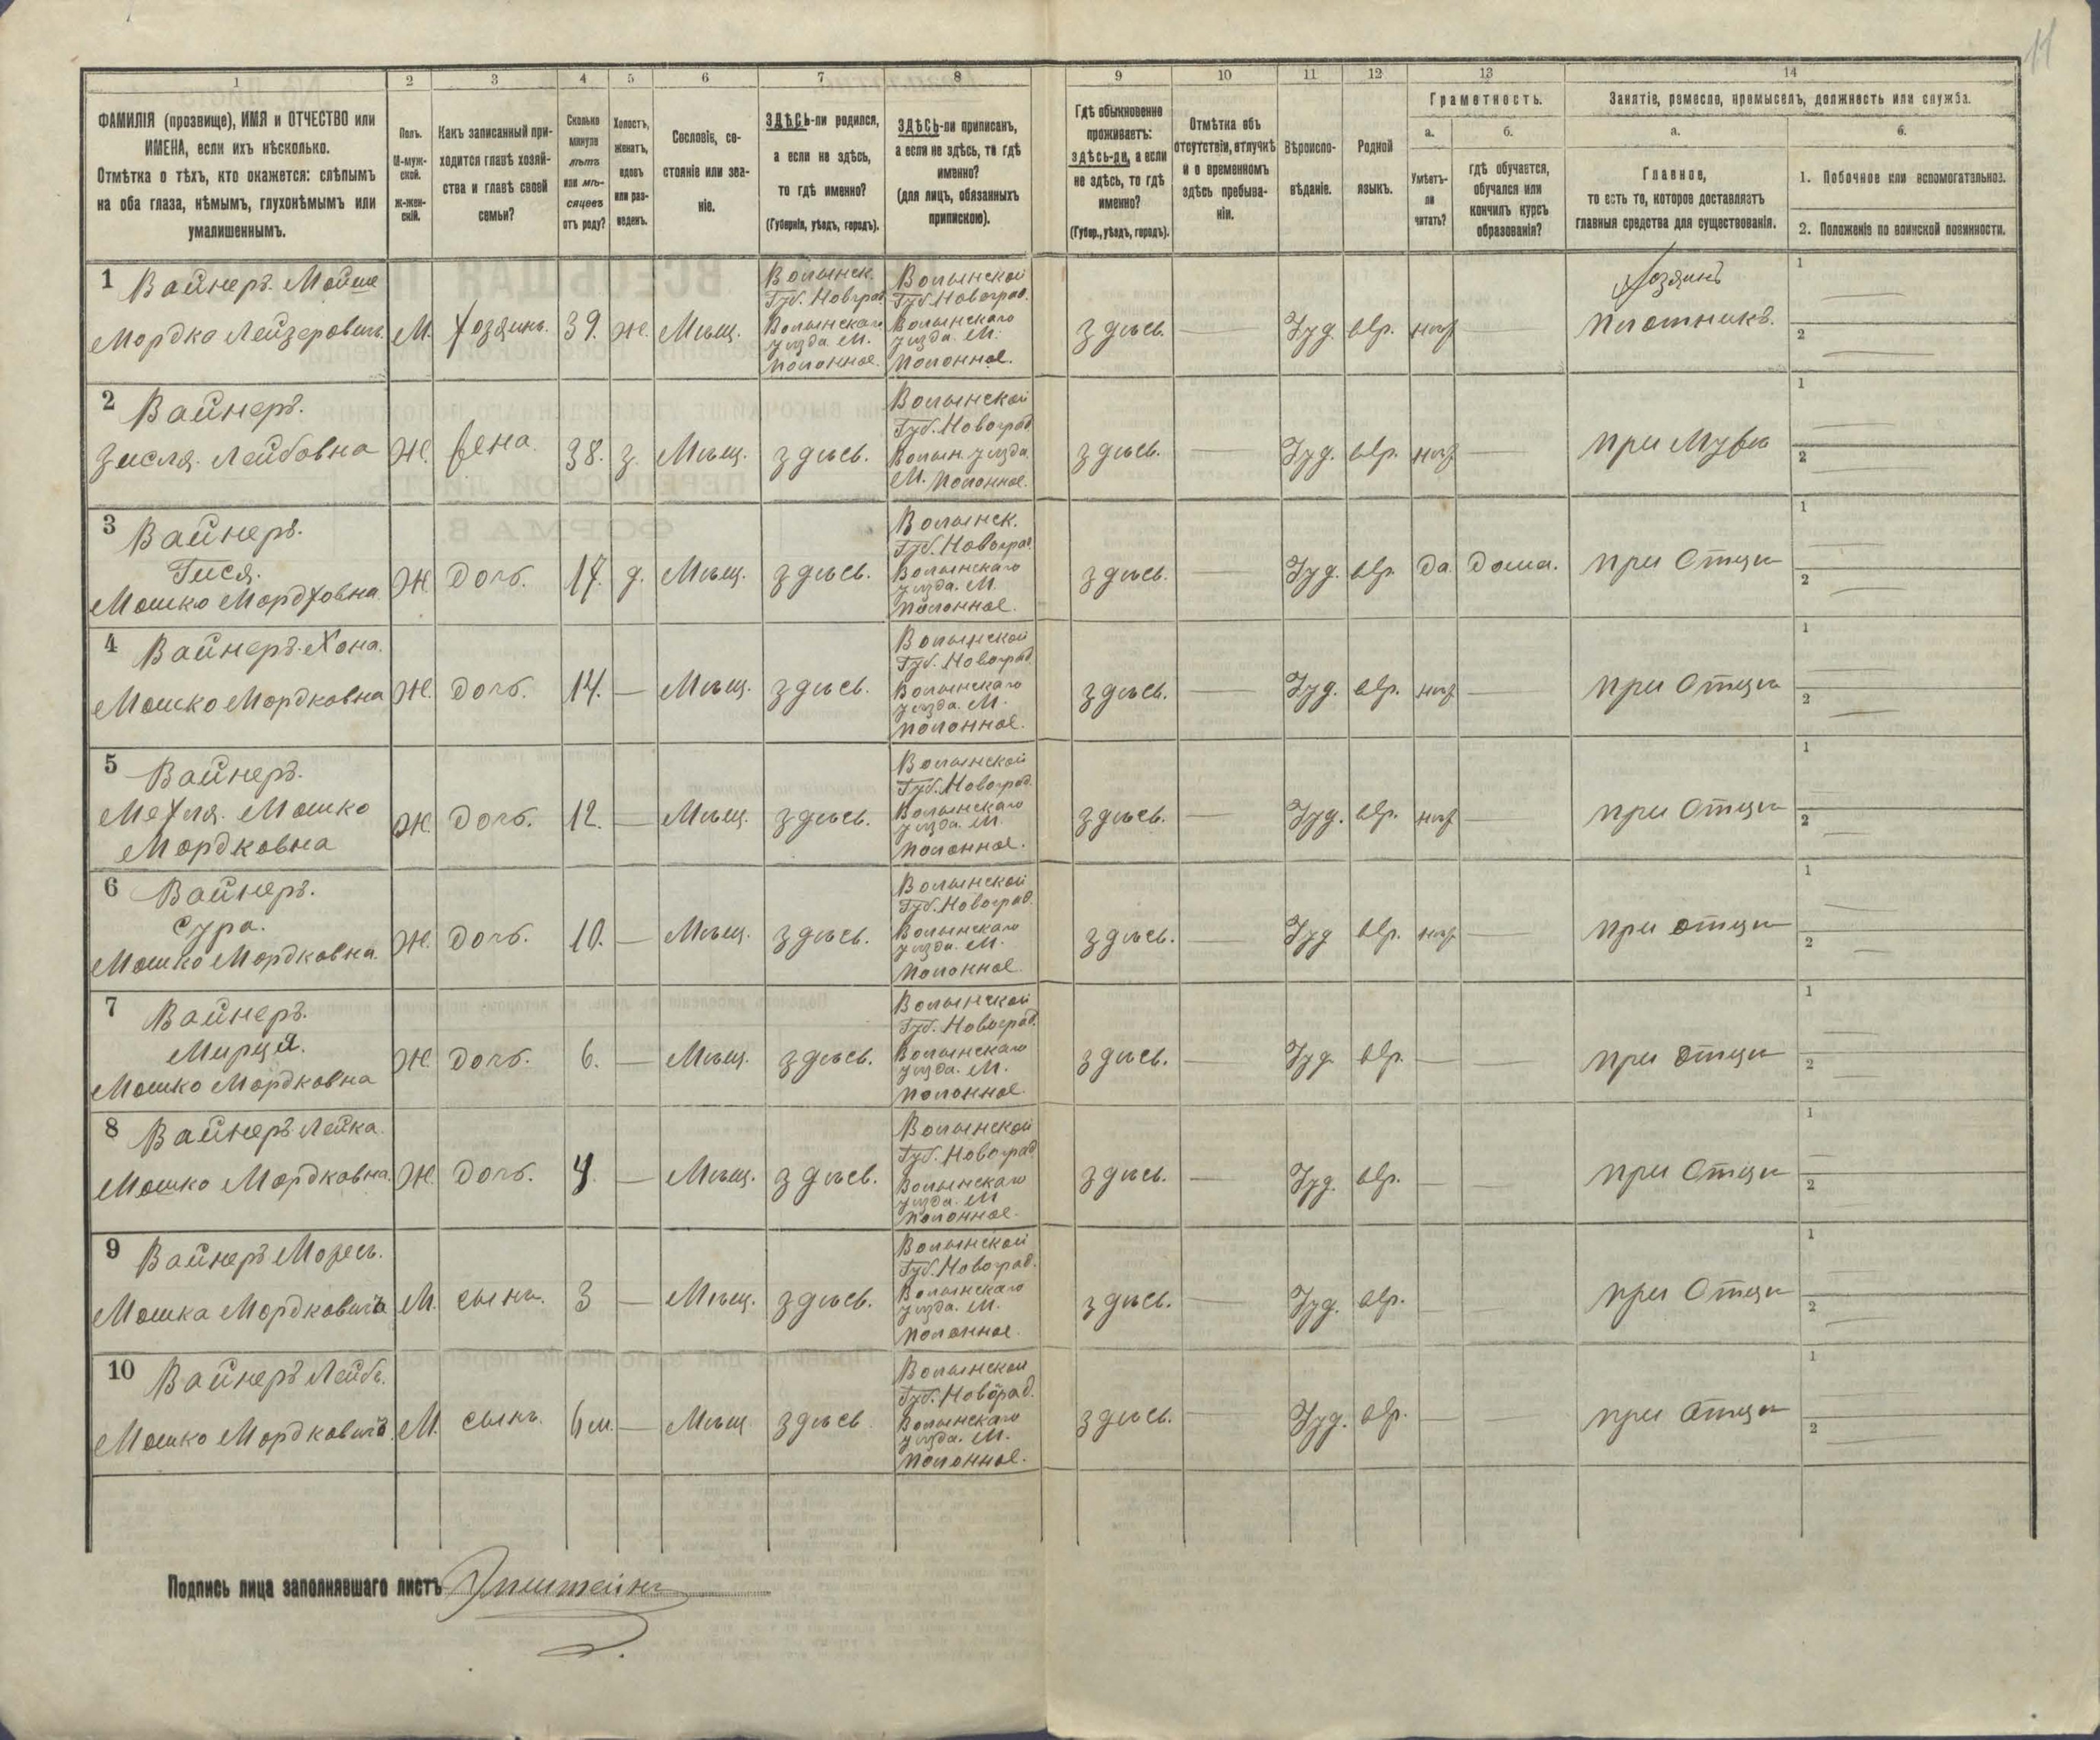 11
1
2
3
4
5
6
7
8
9
10
11
12
13
14
ФАМИЛІЯ (прозвище), ИМЯ и ОТЧЕСТВО или
ИМЕНА, если ихъ нѣсколько.
Отмѣтка о тѣхъ, кто окажется: слѣпымъ
на оба глаза, нѣмымъ, глухонѣмымъ или
умалишеннымъ.
Полъ.
М-муж-
ской.
Ж-жен-
скій.
Какъ записанный при-
ходится главѣ хозяй-
ства и главѣ своей
семьи?
Сколько
минуло
лѣтъ
или мѣ-
сяцевъ
отъ роду?
Холостъ,
женатъ,
вдовъ
или раз-
веденъ.
Сословіе, со-
стояніе или зва-
ніе.
ЗДѢСЬ-ли родился,
а если не здѣсь,
то гдѣ именно?
(Губернія, уѣздъ, городъ).
ЗДѢСЬ-ли приписанъ,
а если не здѣсь, то гдѣ
именно?
(для лицъ, обязанныхъ
припискою).
Гдѣ обыкновенно
проживаетъ:
здѣсь-ли, а если
не здѣсь, то гдѣ
именно?
(Губер., уѣздъ, городъ).
Отмѣтка объ
отсутствіи, отлучкѣ
и о временномъ
здѣсь пребыва-
ніи.
Вѣроиспо-
вѣданіе.
Родной
языкъ.
Грамотность.
а.
Умѣетъ-
ли
читать?
б.
гдѣ обучается,
обучался или
кончилъ курсъ
образованія?
Занятіе, ремесло, промыселъ, должность или служба.
а.
Главное,
то есть то, которое доставляетъ
главныя средства для существованія.
б.
1. Побочное или вспомогательное.
2. Положеніе по воинской повинности.
1 Вайнеръ. Мойше
Мордко Лейзеровичъ.
М.
Хозяинъ.
39.
ж.
Мѣщ.
Волынск.
Губ. Новград.
Волынскаго
уѣзда. М.
Полонное.
Волынской
Губ. Новоград.
Волынскаго
уѣзда. М.
Полонное.
здѣсь.
Іуд.
евр.
нѣт
Хозяинъ
Плотникъ.
1
2
2 Вайнеръ.
Зисля. Лейбовна
Ж.
Жена.
38.
з.
Мѣщ.
здѣсь.
Волынской
Губ. Новоград
Волын. уѣзда
М. Полонное.
здѣсь.
Іуд.
евр.
нѣт
при Мужѣ
1
2
3 Вайнеръ.
Гися.
Мошко Мордховна.
Ж.
Дочь.
17.
д.
Мѣщ.
здѣсь.
Волынск.
Губ. Новоград
Волынскаго
уѣзда. М.
Полонное.
здѣсь.
Іуд.
евр.
да.
дома.
при Отцѣ
1
2
4 Вайнеръ. Хона.
Мошко Мордковна
Ж.
Дочь.
14.
Мѣщ.
здѣсь.
Волынской
Губ. Новоград.
Волынскаго
уѣзда. М.
Полонное.
здѣсь.
Іуд.
евр.
нѣт
при Отцѣ
1
2
5 Вайнеръ.
Мехля. Мошко
Мордковна
Ж.
Дочь.
12.
Мѣщ.
здѣсь.
Волынской
Губ. Новоград.
Волынскаго
уѣзда. М.
Полонное.
здѣсь.
Іуд.
евр.
нѣт
при Отцѣ
1
2
6 Вайнеръ.
Сура.
Мошко Мордковна.
Ж.
Дочь.
10.
Мѣщ.
здѣсь.
Волынской
Губ. Новоград.
Волынскаго
уѣзда. М.
Полонное
здѣсь.
Іуд
евр.
нѣт
при отцѣ
1
2
7 Вайнеръ.
Мирця.
Мошко Мордковна
Ж.
Дочь.
6.
Мѣщ.
здѣсь.
Волынской
Губ. Новоград.
Волынскаго
уѣзда. М.
Полонное.
здѣсь.
Іуд.
евр.
при Отцѣ
1
2
8 Вайнеръ Лейка.
Мошко Мордковна.
Ж.
Дочь.
4.
Мѣщ.
здѣсь.
Волынской
Губ. Новоград
Волынскаго
уѣзда. М
Полонное.
здѣсь.
Іуд.
евр.
при Отцѣ
1
2
9 Вайнеръ
Мошка Мордковичъ
М.
сынъ.
3
Мѣщ.
здѣсь.
Волынской
Губ. Новоград.
Волынскаго
уѣзда. М.
Полонное.
здѣсь.
Іуд.
евр.
при Отцѣ
1
2
10 Вайнеръ Лейбъ.
Мошко Мордковичъ.
М.
сынъ.
6 м.
Мѣщ
здѣсь
Волынской
Губ. Новград.
Волынскаго
уѣзда. М.
Полонное.
здѣсь.
Іуд.
евр.
при Отцѣ
1
2
Подпись лица заполнявшаго листъ